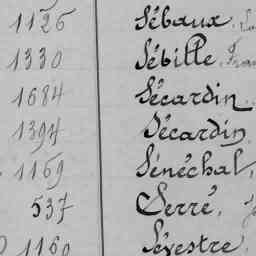 1126 Sébaux.
1330 Sébille. Fran
1684 Sécardin.
1394 Sécardin,
1169 Sénéchal,
537 Serré,
1160 Sévestre.